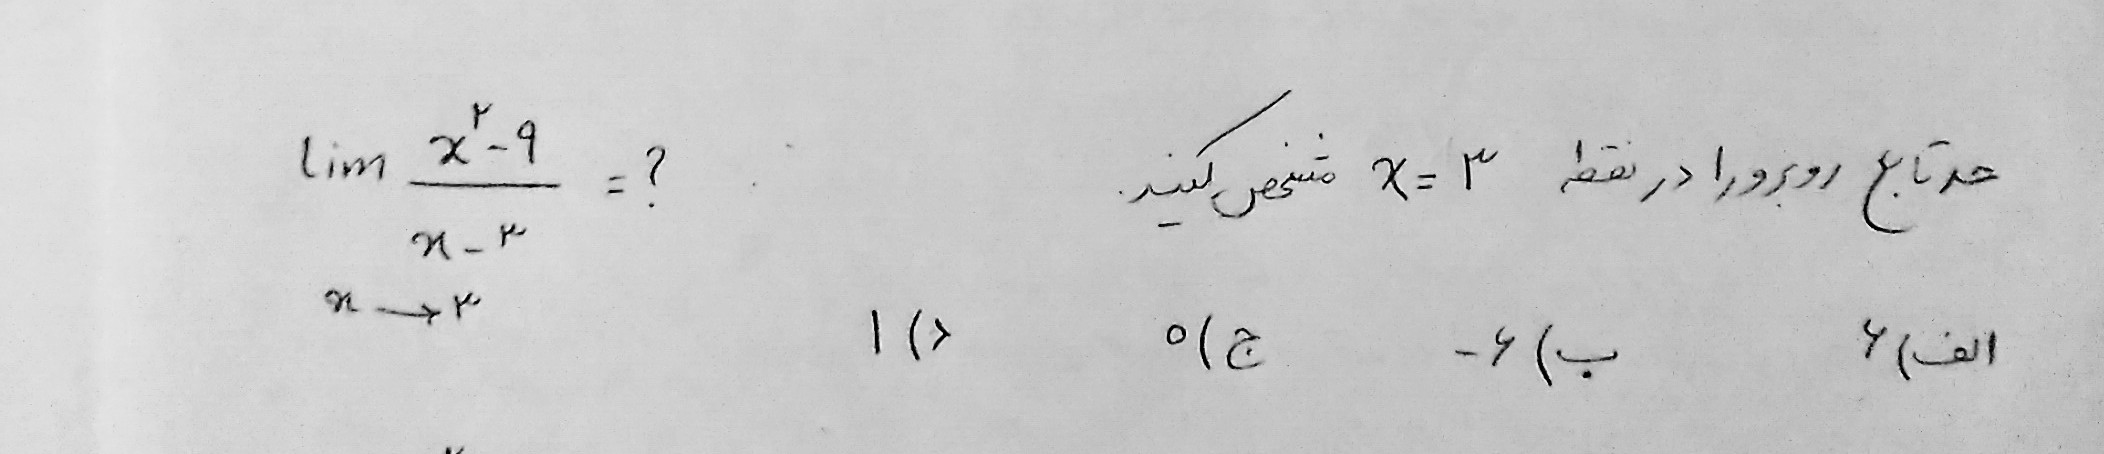 حد تابع روبرو را در نقطه x = ۳ مشخص کنید. lim x²-۹ / x-۳ = ?
x → ۳
الف) ۶ ب) -۶ ج) ۰ د) ۱